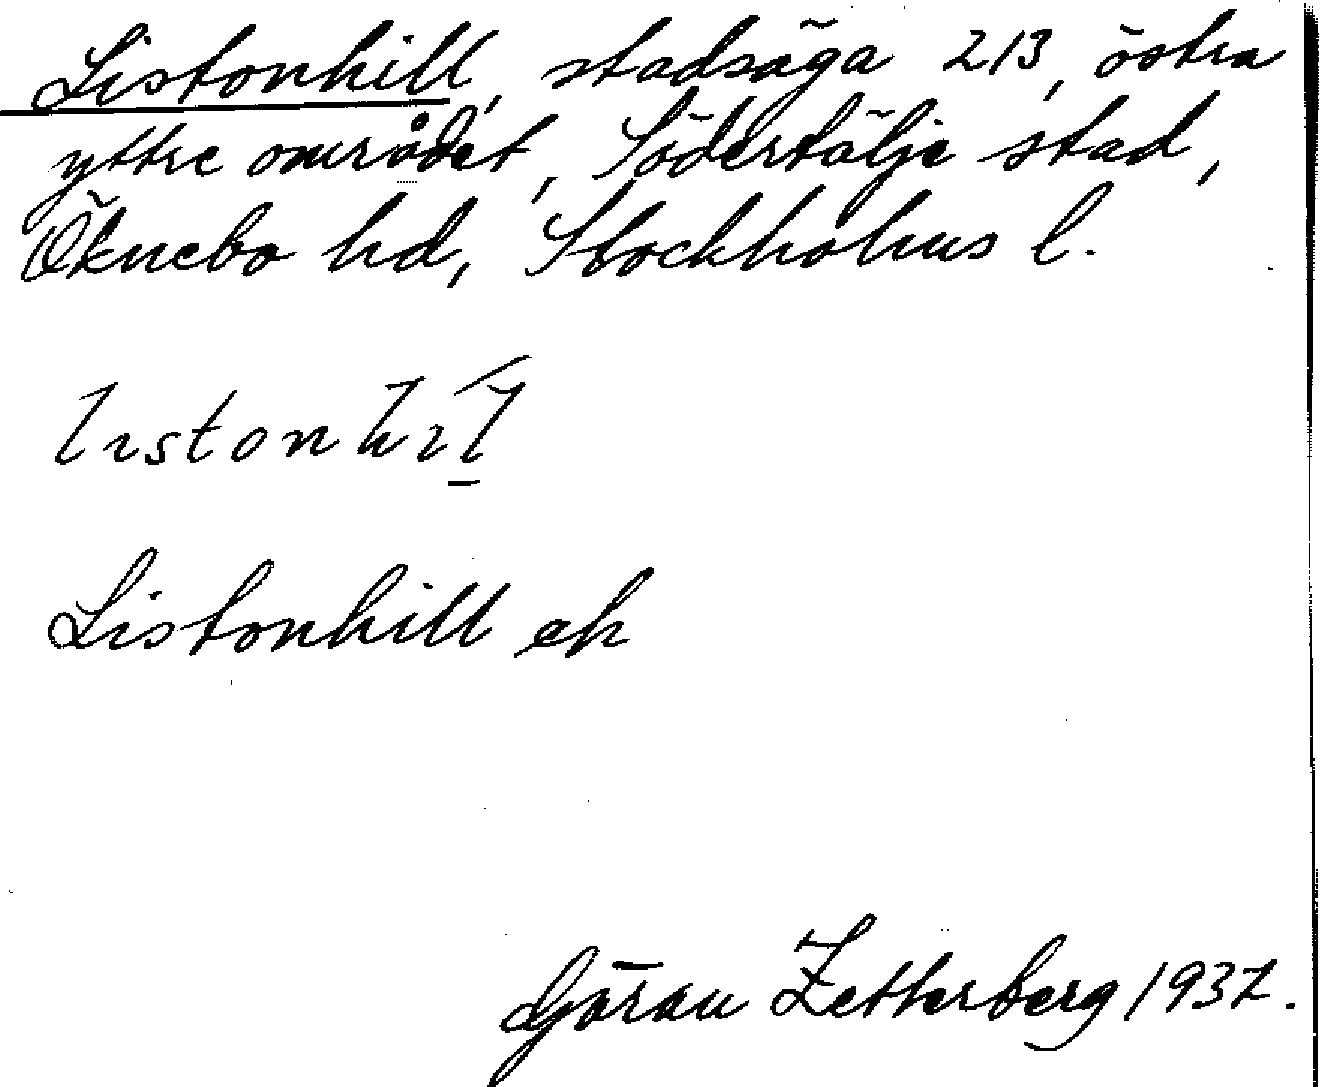 Listonhill, stadsäga 213, östra
yttre området, Södertälje stad,
Öknebo hd, Stockholms l.
Listonhill ek
Göran Zetterberg 1937.